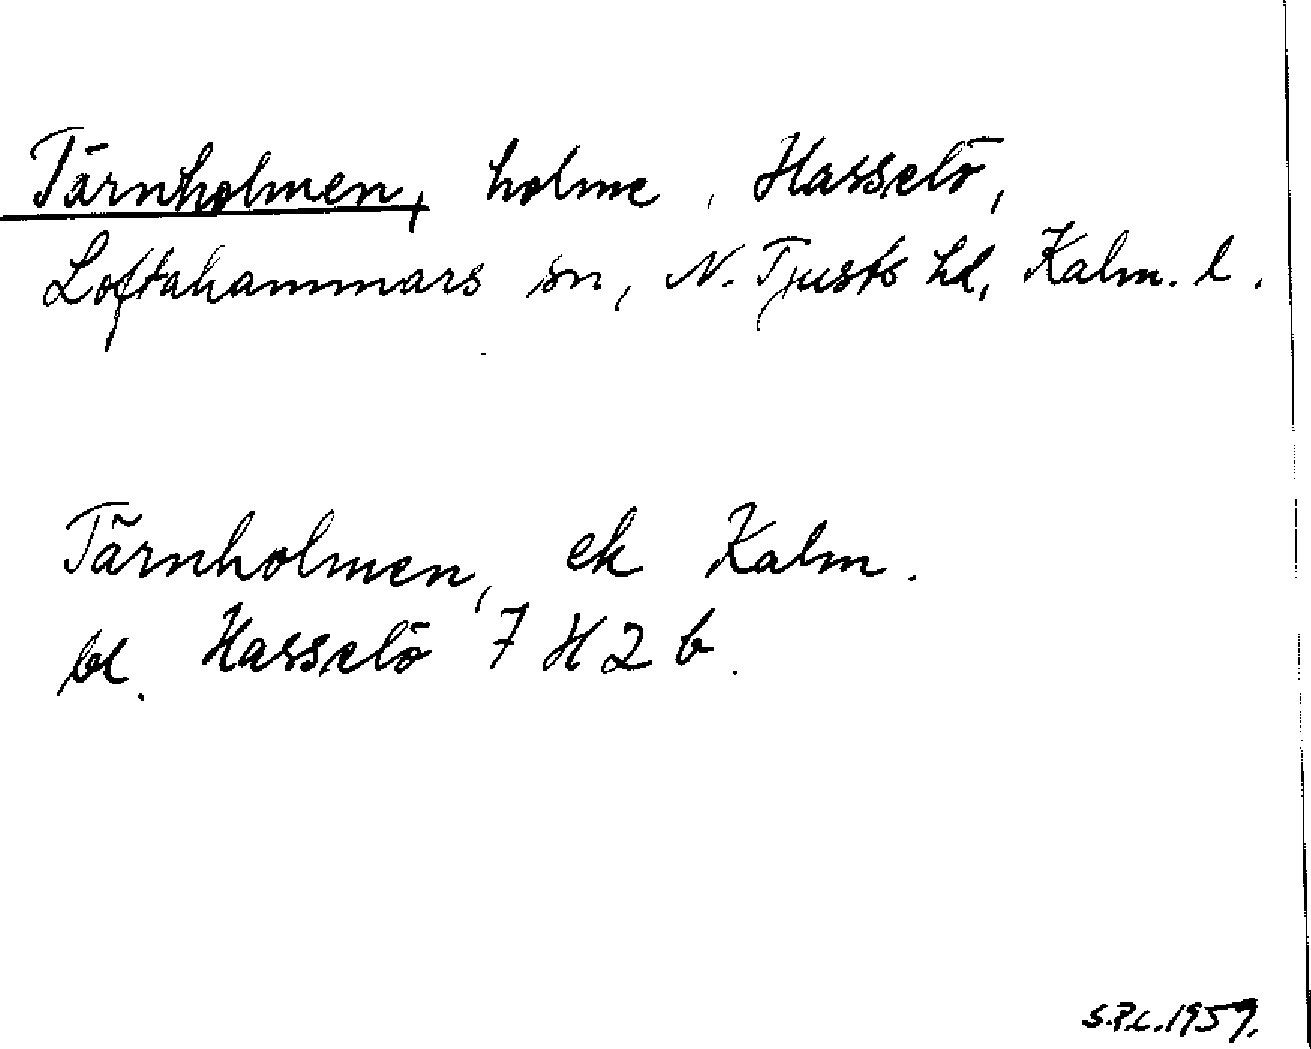 Tärnholmen, holme, Hasselö,
Loftahammars sn, N. Tjusts hd, Kalm. l.
Tärnholmen, ek Kalm.
bl. Hasselö 7 H 2 b.
S.P.C. 1959.